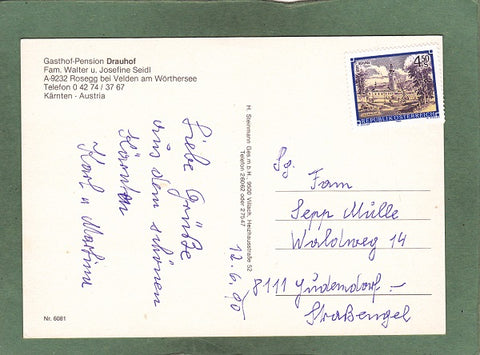 Gasthof-Pension Drauhof
Fam. Walter u. Josefine Seidl
A-9232 Rosegg bei Velden am Wörthersee
Telefon 0 42 74 / 37 67
Kärnten - Austria
4.50
REPUBLIK ÖSTERREICH
H. Steinmann Ges.m.b.H., 9500 Villach, Heizhausstraße 52
Telefon 26/0/62 oder 27547
Liebe Grüße
aus dem schönen
Kärnten
Karl u Martina
12.6.90
Sg.
Fam
Sepp Mülle
Waldweg 14
8111 Judendorf -
Straßengel
Nr. 6081